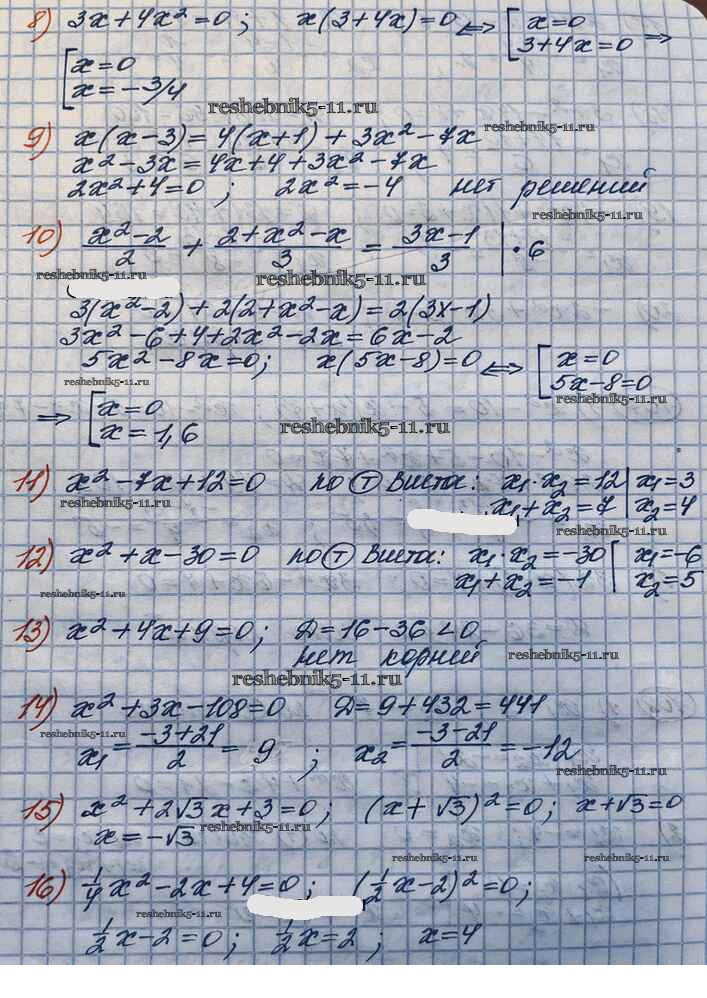 8) 3x + 4x² = 0 ; x(3 + 4x) = 0 <=> [ x = 0
3 + 4x = 0 =>
[ x = 0
x = -3/4
reshebnik5-11.ru
9) x(x-3) = 4(x+1) + 3x² - 7x
reshebnik5-11.ru
x² - 3x = 4x + 4 + 3x² - 7x
2x² + 4 = 0 ; 2x² = -4 нет решений
reshebnik5-11.ru
10) (x²-2)/2 + (2+x²-x)/3 = (3x-1)/3 | · 6
reshebnik5-11.ru
reshebnik5-11.ru
3(x²-2) + 2(2+x²-x) = 2(3x-1)
3x² - 6 + 4 + 2x² - 2x = 6x - 2
5x² - 8x = 0; x(5x-8) = 0 <=> [ x = 0
5x - 8 = 0
reshebnik5-11.ru
reshebnik5-11.ru
=> [ x = 0
x = 1,6
reshebnik5-11.ru
11) x² - 7x + 12 = 0 по Ⓣ Виета: x₁·x₂ = 12 | x₁ = 3
x₁ + x₂ = 7 | x₂ = 4
reshebnik5-11.ru
12) x² + x - 30 = 0 по Ⓣ Виета: x₁·x₂ = -30 [ x₁ = -6
x₁ + x₂ = -1 x₂ = 5
reshebnik5-11.ru
13) x² + 4x + 9 = 0; D = 16 - 36 < 0
нет корний
reshebnik5-11.ru
reshebnik5-11.ru
14) x² + 3x - 108 = 0 D = 9 + 432 = 441
reshebnik5-11.ru
x₁ = (-3+21)/2 = 9 ; x₂ = (-3-21)/2 = -12
reshebnik5-11.ru
15) x² + 2√3x + 3 = 0; (x + √3)² = 0; x + √3 = 0
x = -√3
reshebnik5-11.ru
reshebnik5-11.ru
reshebnik5-11.ru
16) 1/4x² - 2x + 4 = 0; (1/2x - 2)² = 0;
reshebnik5-11.ru
1/2x - 2 = 0; 1/2x = 2 ; x = 4